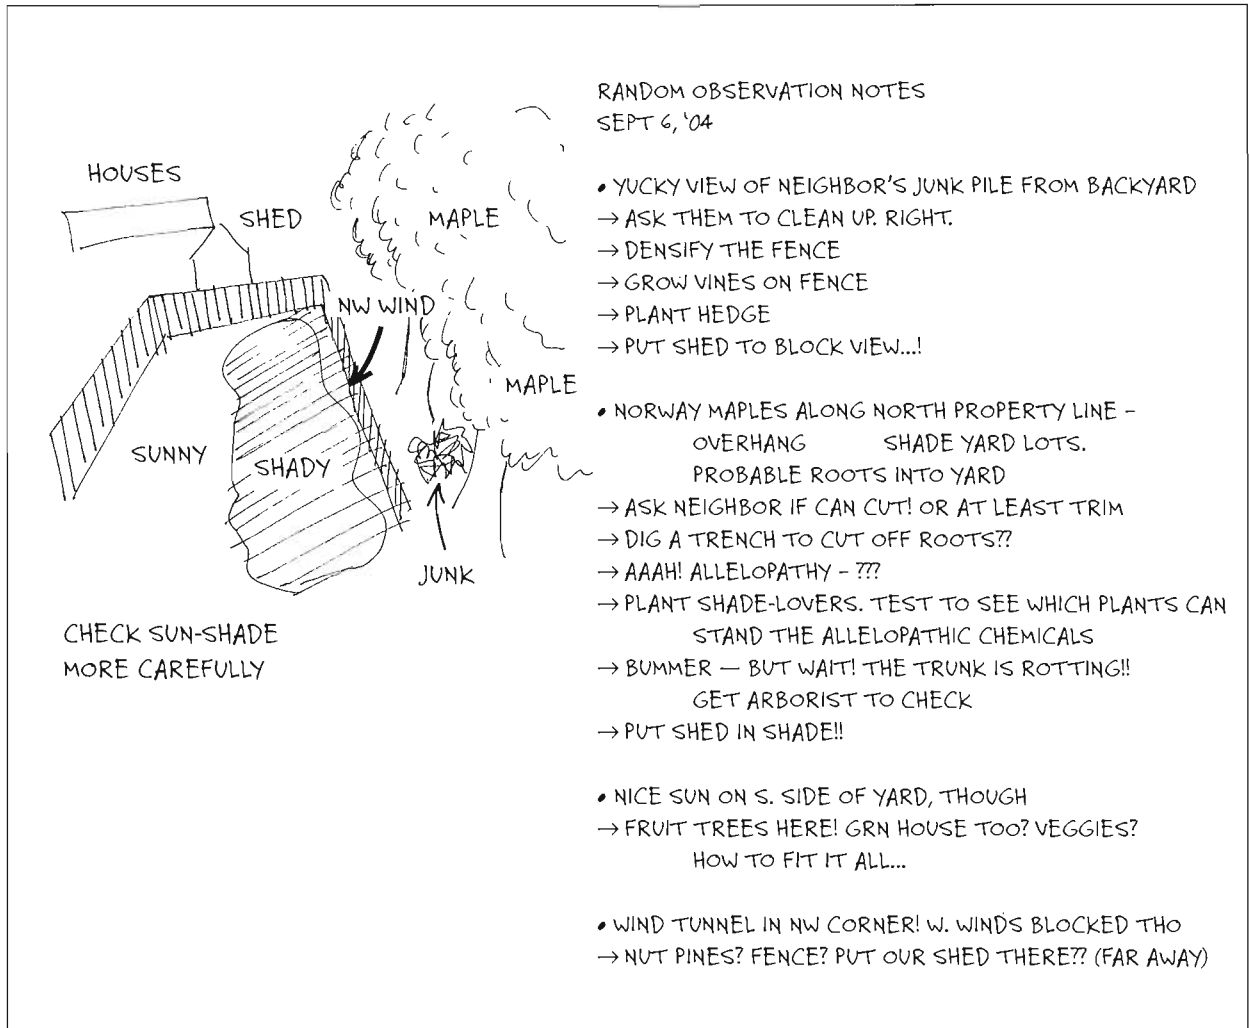 HOUSES
SHED
MAPLE
NW WIND
MAPLE
SUNNY
SHADY
JUNK
CHECK SUN-SHADE
MORE CAREFULLY
RANDOM OBSERVATION NOTES
SEPT 6, '04
• YUCKY VIEW OF NEIGHBOR'S JUNK PILE FROM BACKYARD
→ ASK THEM TO CLEAN UP. RIGHT.
→ DENSIFY THE FENCE
→ GROW VINES ON FENCE
→ PLANT HEDGE
→ PUT SHED TO BLOCK VIEW...!
• NORWAY MAPLES ALONG NORTH PROPERTY LINE –
OVERHANG SHADE YARD LOTS.
PROBABLE ROOTS INTO YARD
→ ASK NEIGHBOR IF CAN CUT! OR AT LEAST TRIM
→ DIG A TRENCH TO CUT OFF ROOTS??
→ AAAH! ALLELOPATHY – ???
→ PLANT SHADE-LOVERS. TEST TO SEE WHICH PLANTS CAN
STAND THE ALLELOPATHIC CHEMICALS
→ BUMMER — BUT WAIT! THE TRUNK IS ROTTING!!
GET ARBORIST TO CHECK
→ PUT SHED IN SHADE!!
• NICE SUN ON S. SIDE OF YARD, THOUGH
→ FRUIT TREES HERE! GRN HOUSE TOO? VEGGIES?
HOW TO FIT IT ALL...
• WIND TUNNEL IN NW CORNER! W. WINDS BLOCKED THO
→ NUT PINES? FENCE? PUT OUR SHED THERE?? (FAR AWAY)